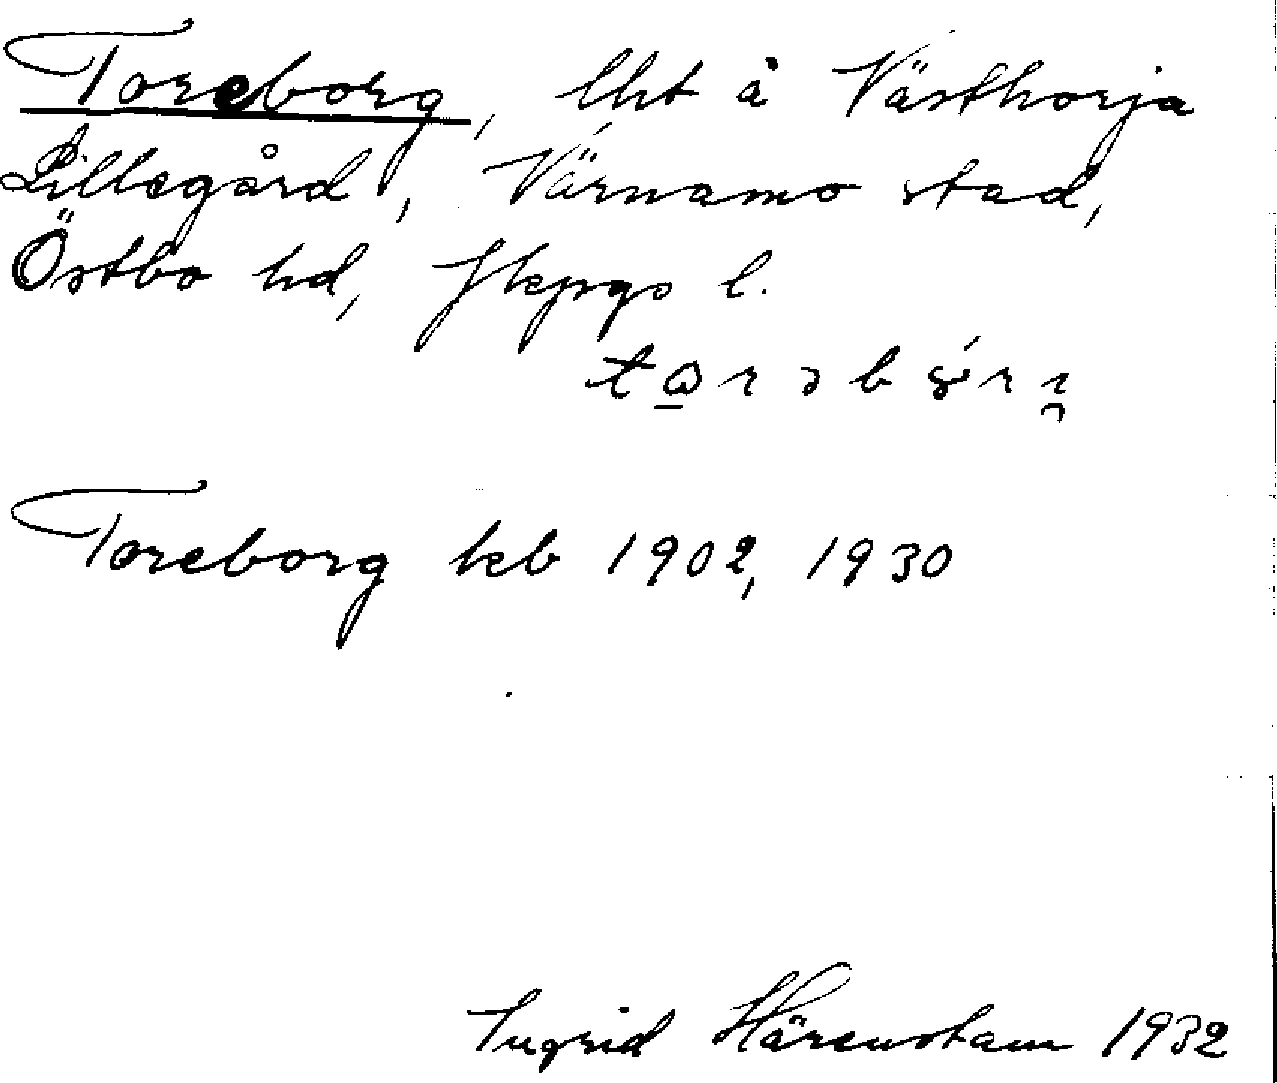 Toreborg, lht å Västhorja
Lillegård, Värnamo stad,
Östbo hd, Jkpgs l.
Toreborg kb 1902, 1930
Ingrid Härenstam 1932